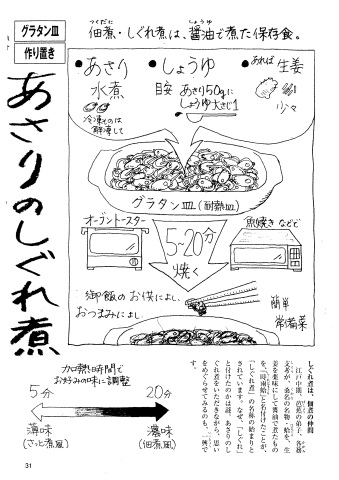 グラタン皿
作り置き
あさりのしぐれ煮
つくだに しょうゆ
佃煮・しぐれ煮は、醤油で煮た保存食。
●あさり
水煮
冷凍ものは
解凍して
●しょうゆ
目安 あさり50gに
しょうゆ大さじ1
●あれば生姜
少々
グラタン皿(耐熱皿)
オーブントースター
魚焼きなどで
5~20分
焼く
御飯のお供によし、
おつまみによし
簡単
常備菜
加熱時間で
お好みの味に調整
5分
20分
薄味
(さっと煮風)
濃味
(佃煮風)
しぐれ煮は、佃煮の仲間
江戸中期、芭蕉の弟子、各務
支考が、桑名の名物、蛤を、生
姜を薬味にして醤油で煮たもの
を、「時雨蛤」と名付けたことが、
「しぐれ煮」の名称の始まりと
されています。なぜ、「しぐれ」
と付けたのかは謎。あさりのし
ぐれ煮をいただきながら、思い
をめぐらせてみるのも、一興で
す。
31